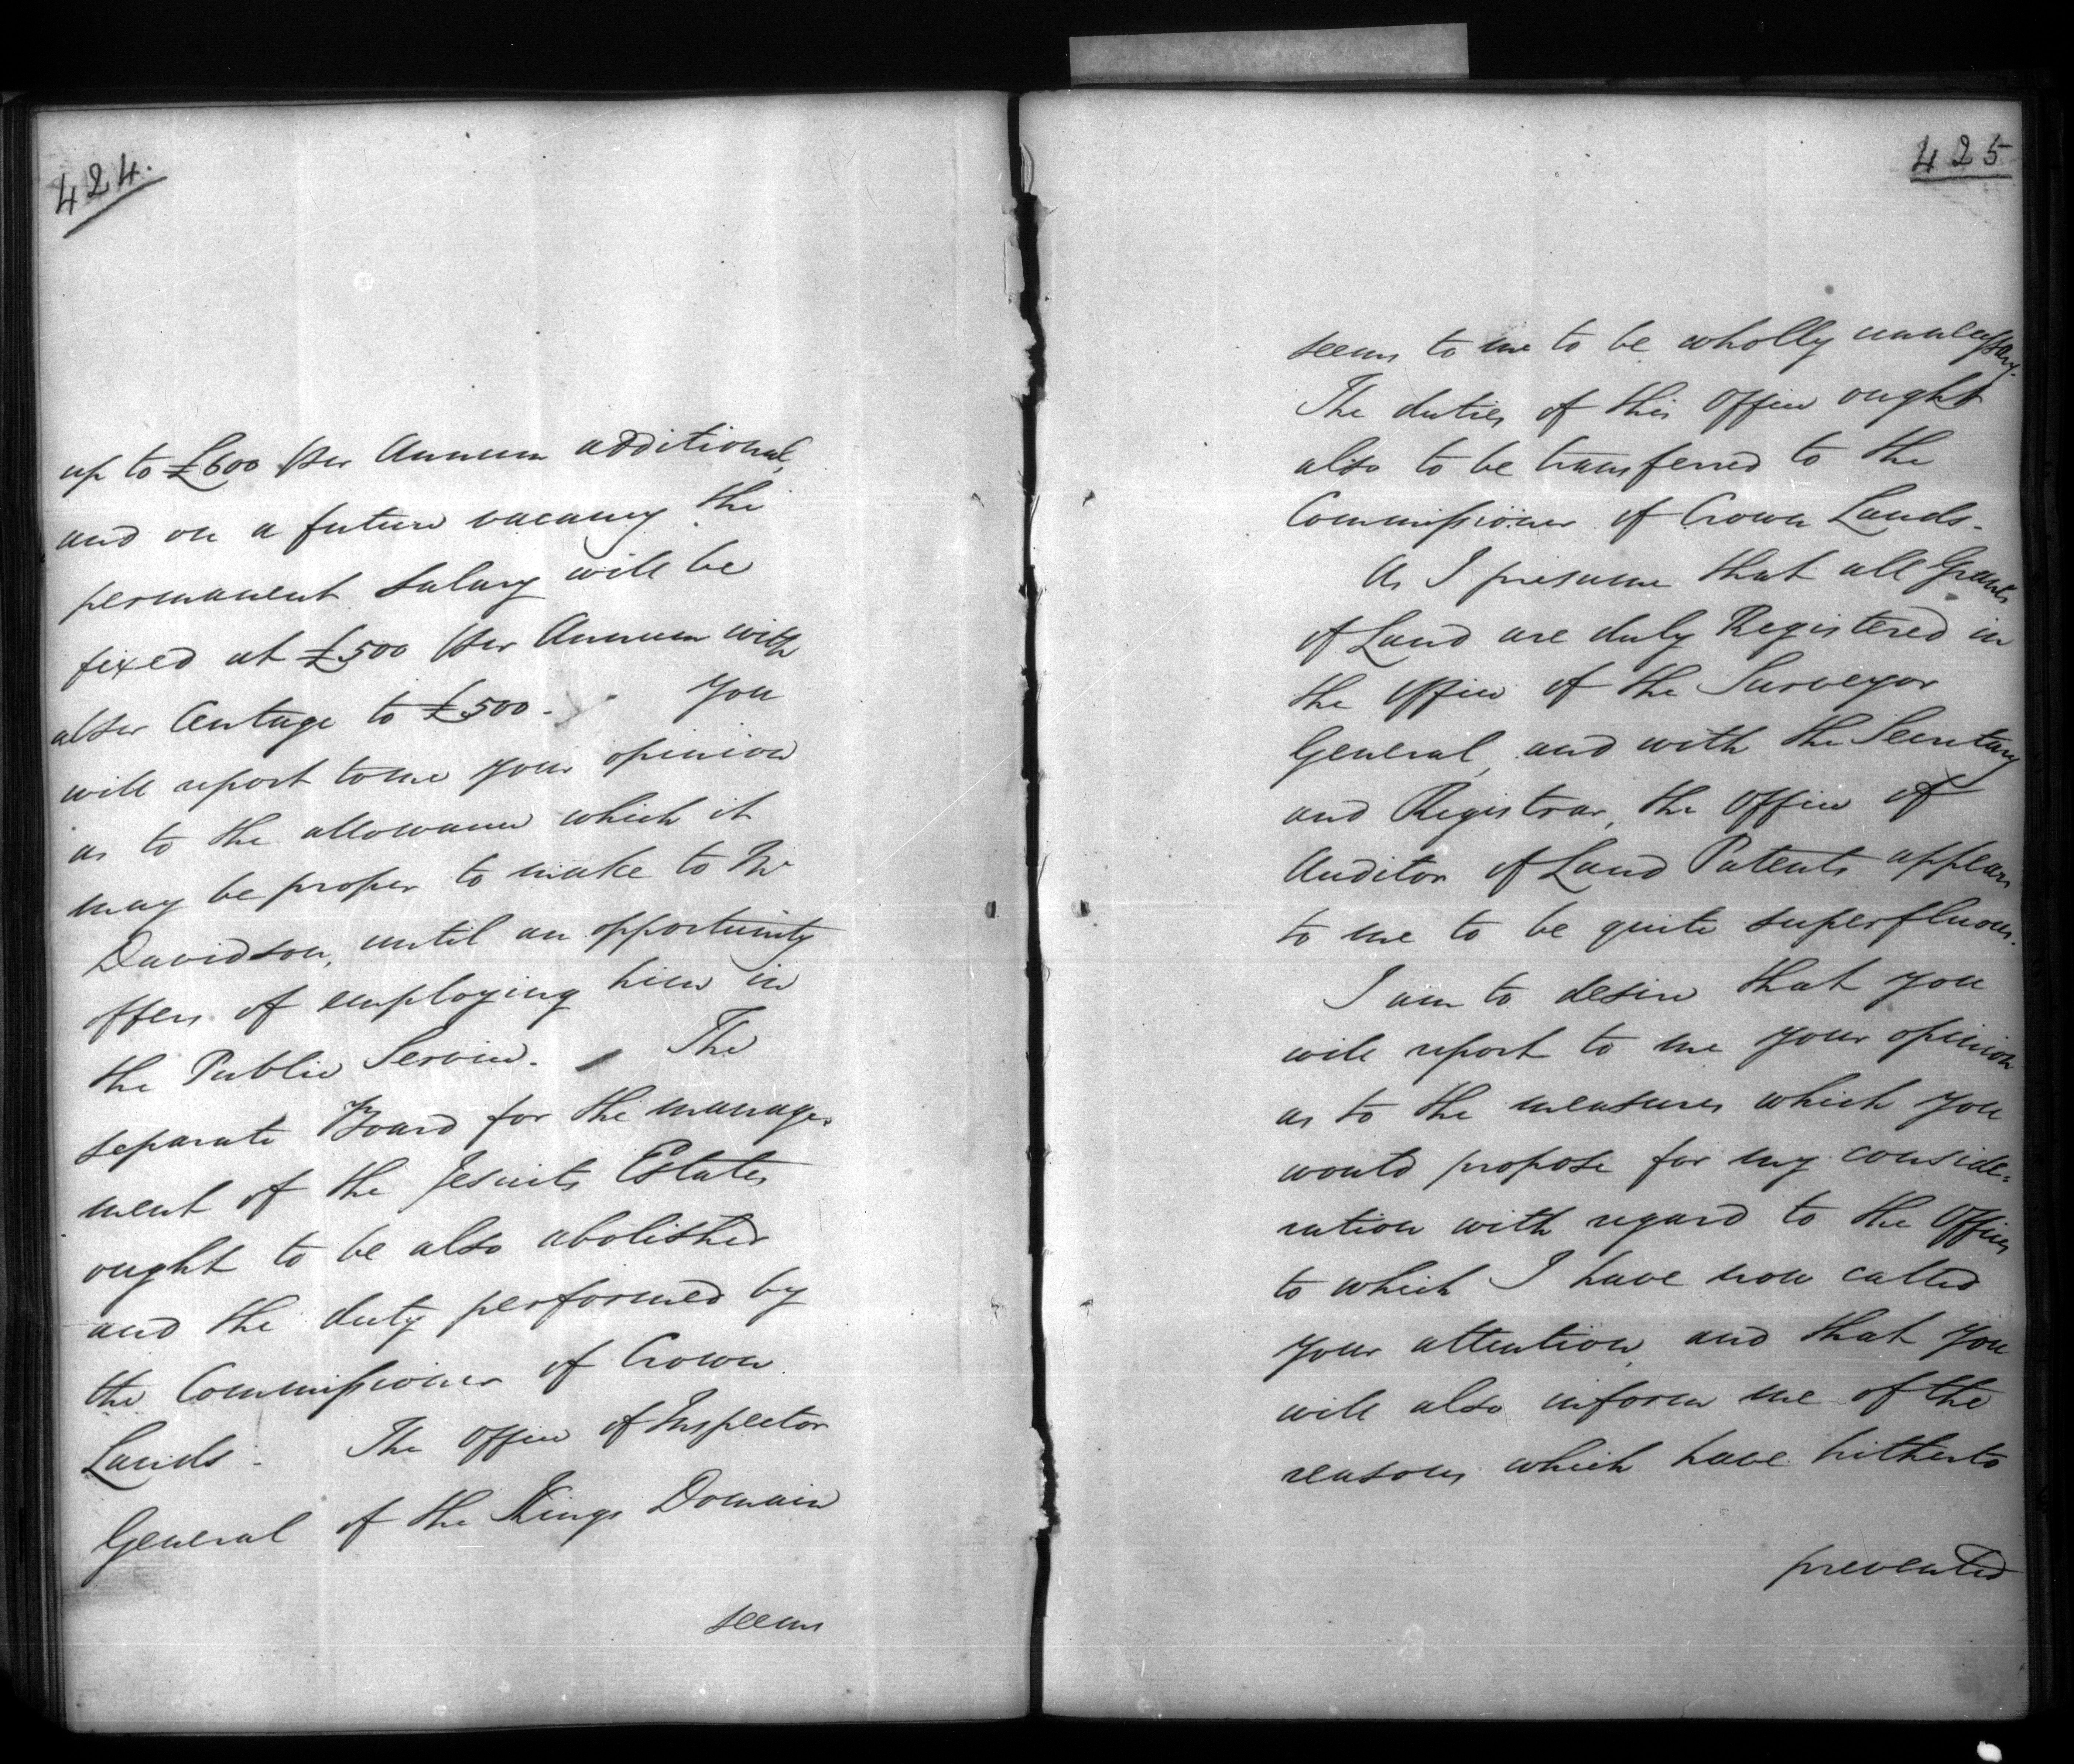 424.
up to £600 per Annum additional,
and on a future vacancy the
permanent Salary will be
fixed at £500 per Annum with
a per Centage to £500. You
will report to me your opinion
as to the allowance which it
may be proper to make to Mr
Davidson, until an opportunity
offers of employing him in
the Public Service. The
separate Board for the manage-
ment of the Jesuits Estates
ought to be also abolished
and the duty performed by
the Commissioner of Crown
Lands. The Office of Inspector
General of the Kings Domain
seems
425
seems to me to be wholly unnecessary.
The duties of this Office ought
also to be transferred to the
Commissioner of Crown Lands.
As I presume that all Grants
of Land are duly Registered in
the Office of the Surveyor
General, and with the Secretary
and Registrar, the Office of
Auditor of Land Patents appears
to me to be quite superfluous.
I am to desire that you
will report to me your opinion
as to the measures which you
would propose for my conside-
ration with regard to the Offices
to which I have now called
your attention, and that you
will also inform me of the
reasons which have hitherto
prevented